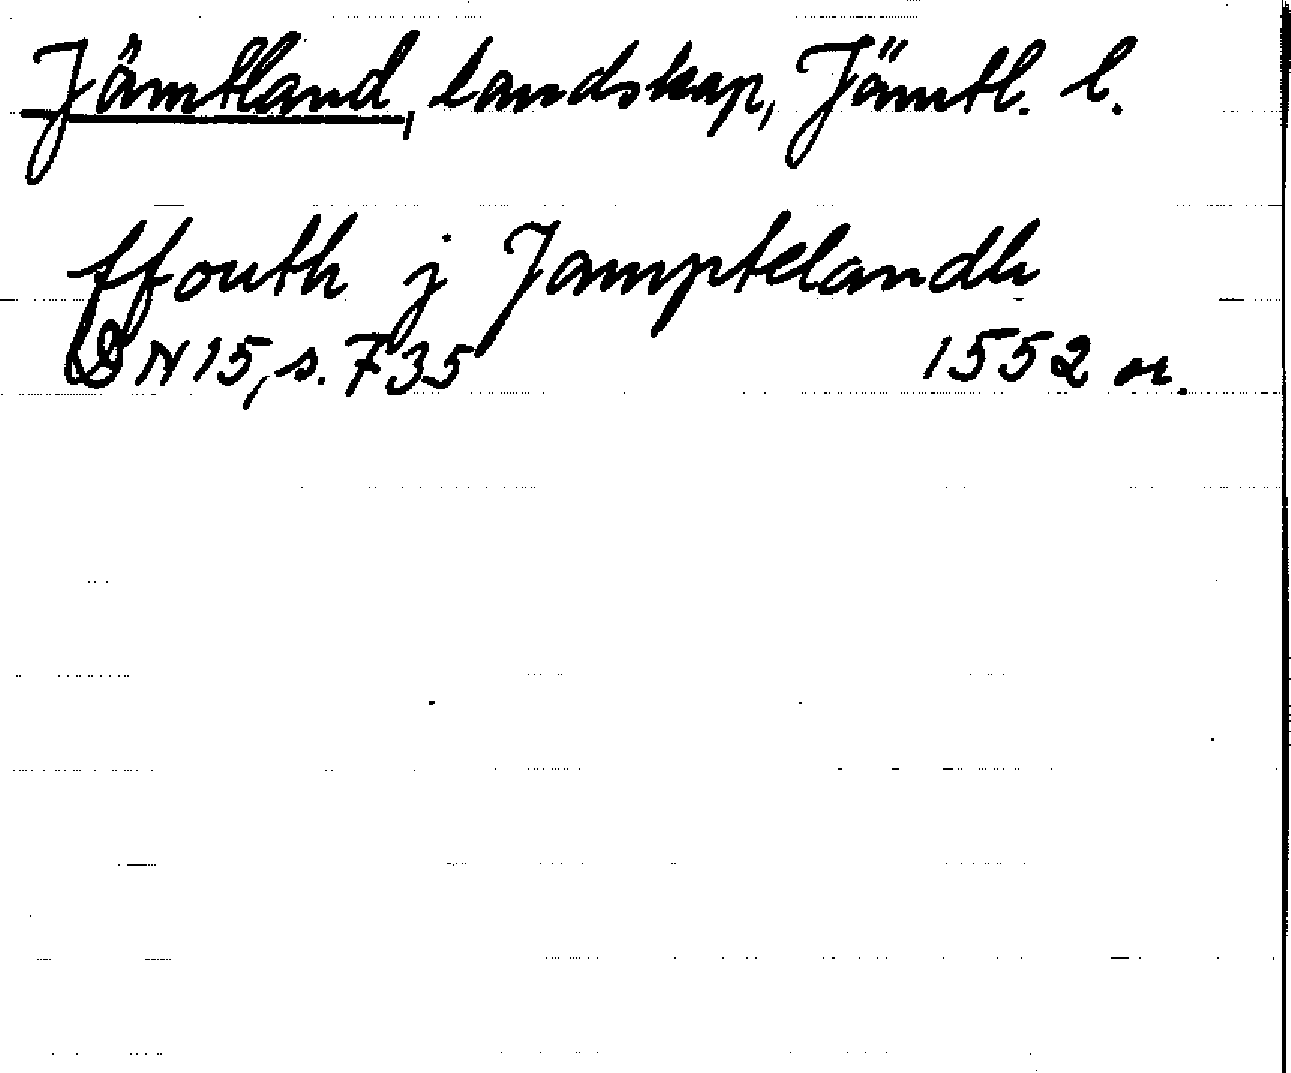 Jämtland, landskap, Jämtl. l.
ffouth j Jamptelandh
DN 15, s. 735 1552 or.